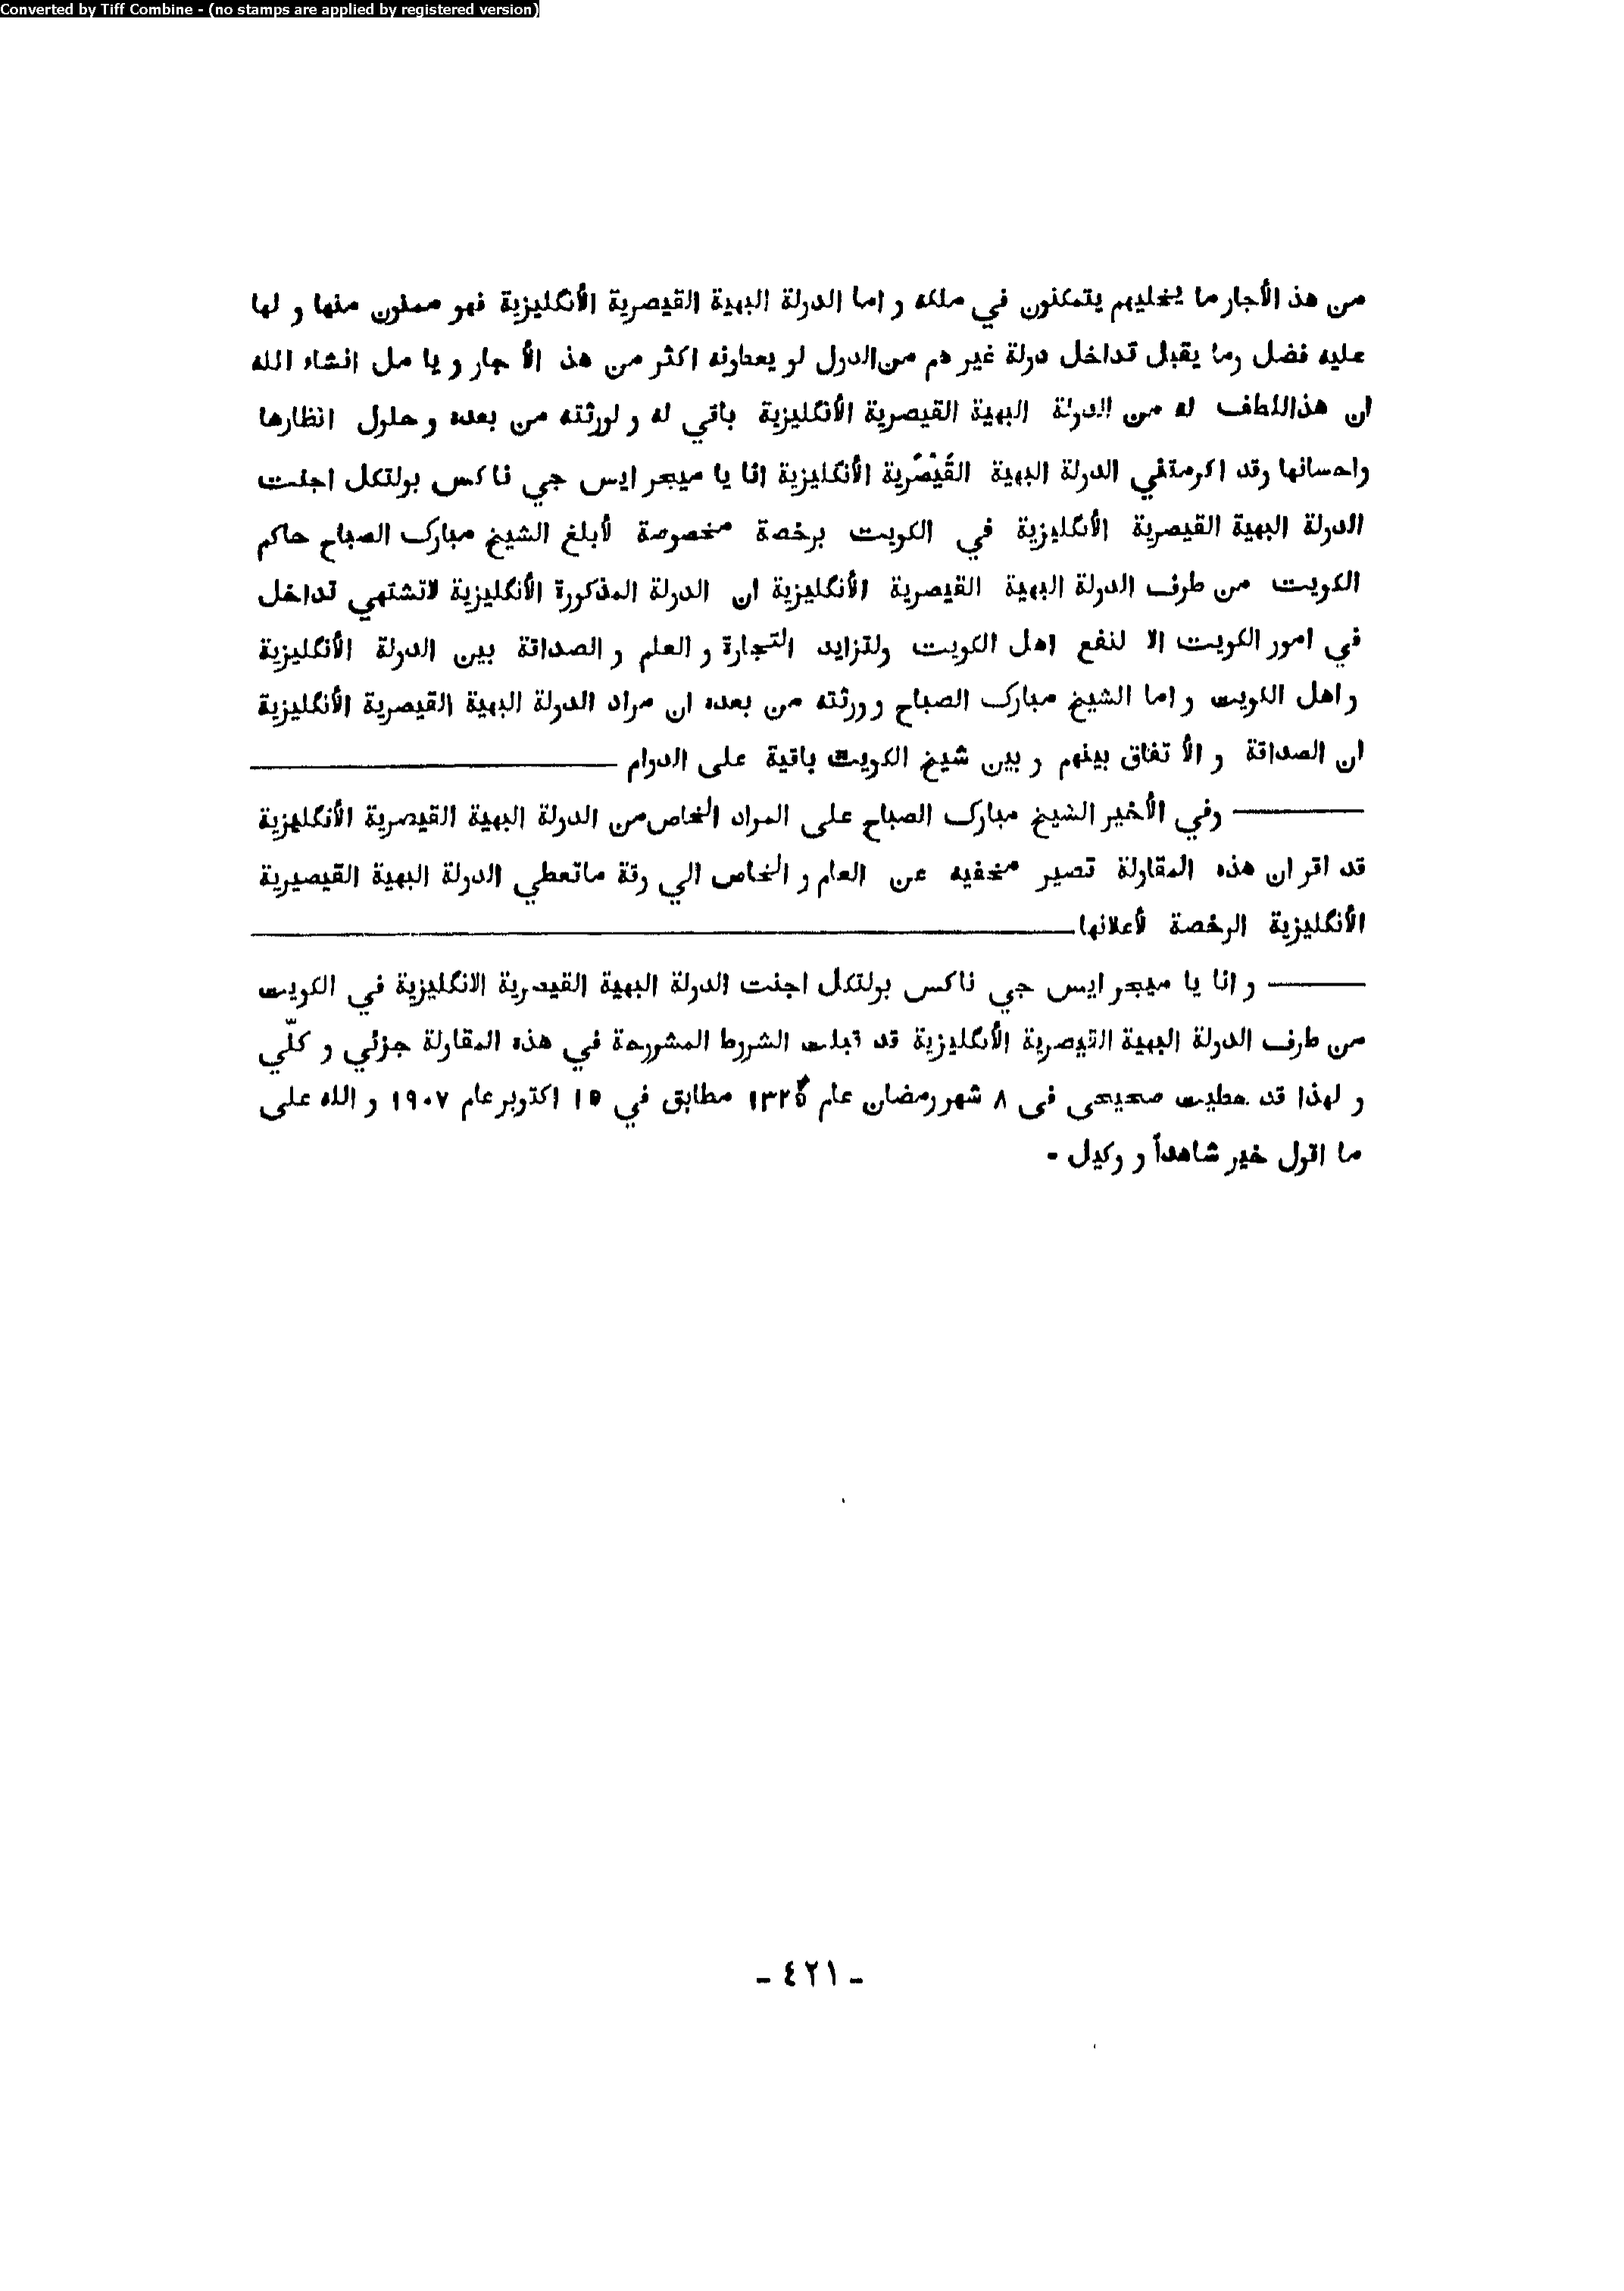 Converted by Tiff Combine - (no stamps are applied by registered version)
من هذ الأجار ما يخليهم يتمكنون في ملكه و اما الدولة البهية القيصرية الأنگليزية فهو ممنون منها و لها
عليه فضل وما يقبل تداخل دولة غير هم من الدول لو يعطونه اكثر من هذ الأ جار و يا مل انشاء الله
ان هذاللطف له من الدولة البهية القيصرية الأنگليزية باقي له و لورثته من بعده و حلول انظارها
واحسانها وقد اكرمتني الدولة البهية القيصرية الأنگليزية انا يا ميجر ايس جي ناكس بولتكل اجنت
الدولة البهية القيصرية الأنگليزية في الكويت برخصة مخصوصة لأبلغ الشيخ مبارك الصباح حاكم
الكويت من طرف الدولة البهية القيصرية الأنگليزية ان الدولة المذكورة الأنگليزية لاتشتهي تداخل
في امور الكويت الا لنفع اهل الكويت ولتزايد التجارة و العلم و الصداقة بين الدولة الأنگليزية
واهل الكويت و اما الشيخ مبارك الصباح و ورثته من بعده ان مراد الدولة البهية القيصرية الأنگليزية
ان الصداقة و الأ تفاق بينهم و بين شيخ الكويت باقية على الدوام
وفي الأخير الشيخ مبارك الصباح على المراد الخاص من الدولة البهية القيصرية الأنگليزية
قد اقر ان هذه المقاولة تصير مخفيه عن العام و الخاص الي وقة ماتعطي الدولة البهية القيصيرية
الأنگليزية الرخصة لأعلانها
و انا يا ميجر ايس جي ناكس بولتكل اجنت الدولة البهية القيصرية الانگليزية في الكويت
من طرف الدولة البهية القيصرية الأنگليزية قد قبلت الشروط المشروحة في هذه المقاولة جزئي و كلّي
و لهذا قد حطيت صحيحي فى ٨ شهر رمضان عام مطابق في ١٥ اكتوبر عام ١٩٠٧ و الله على
ما اقول خير شاهداً و وكيل -
- ٤٢١ -